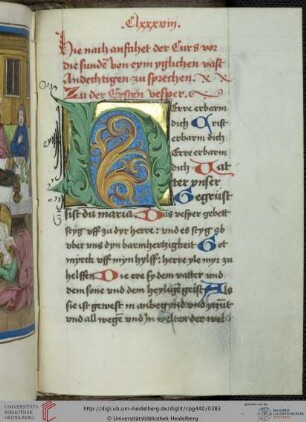 Clxxxviii.
Hie nach anfahet der Curs vor
die sunden von eym yglichen vast
Andechtigen zu sprechen.
Zu der Ersten vesper.
Erre erbarm
dich Crist
erbarm dich
Erre erbarm
dich Vat
ter vnser
Gegrüst
sist du maria Das vesper gebett
styg vff zu dyr herre: vnd es styg ab
vber vns dyn barmhertzigkeit Got
myrck vff myn hylff: herre yle myr zu
helffen Die ere sy dem vatter vnd
dem sone vnd dem heyligen geist Als
sie ist gewest in anbegynd vnd ytzunt
vnd all wege vnd In welten der wel
UNIVERSITÄTS-
BIBLIOTHEK
HEIDELBERG
http://digi.ub.uni-heidelberg.de/diglit/cpg440/0383
© Universitätsbibliothek Heidelberg